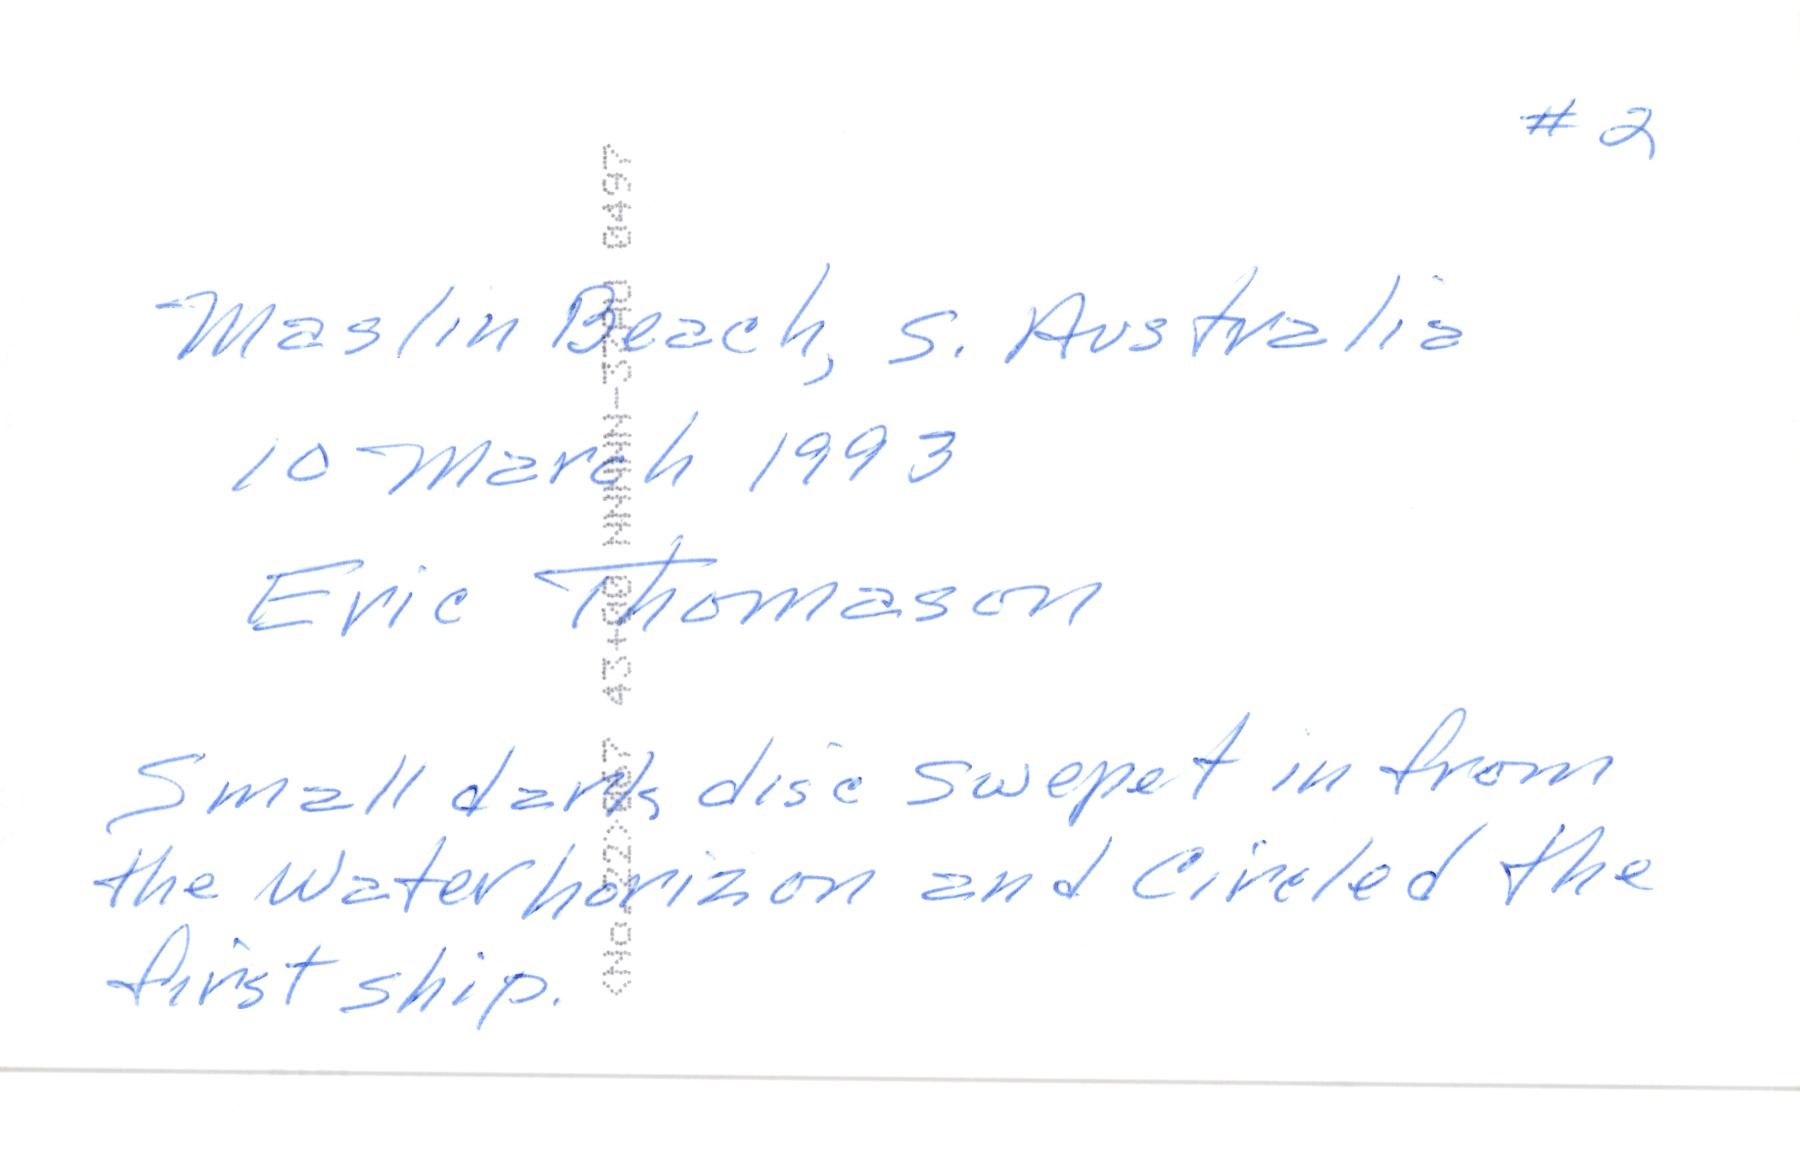 #2
Maslin Beach, S. Australia
10 March 1993
Eric Thomason
Small dark disc swepet in from
the water horizon and circled the
first ship.